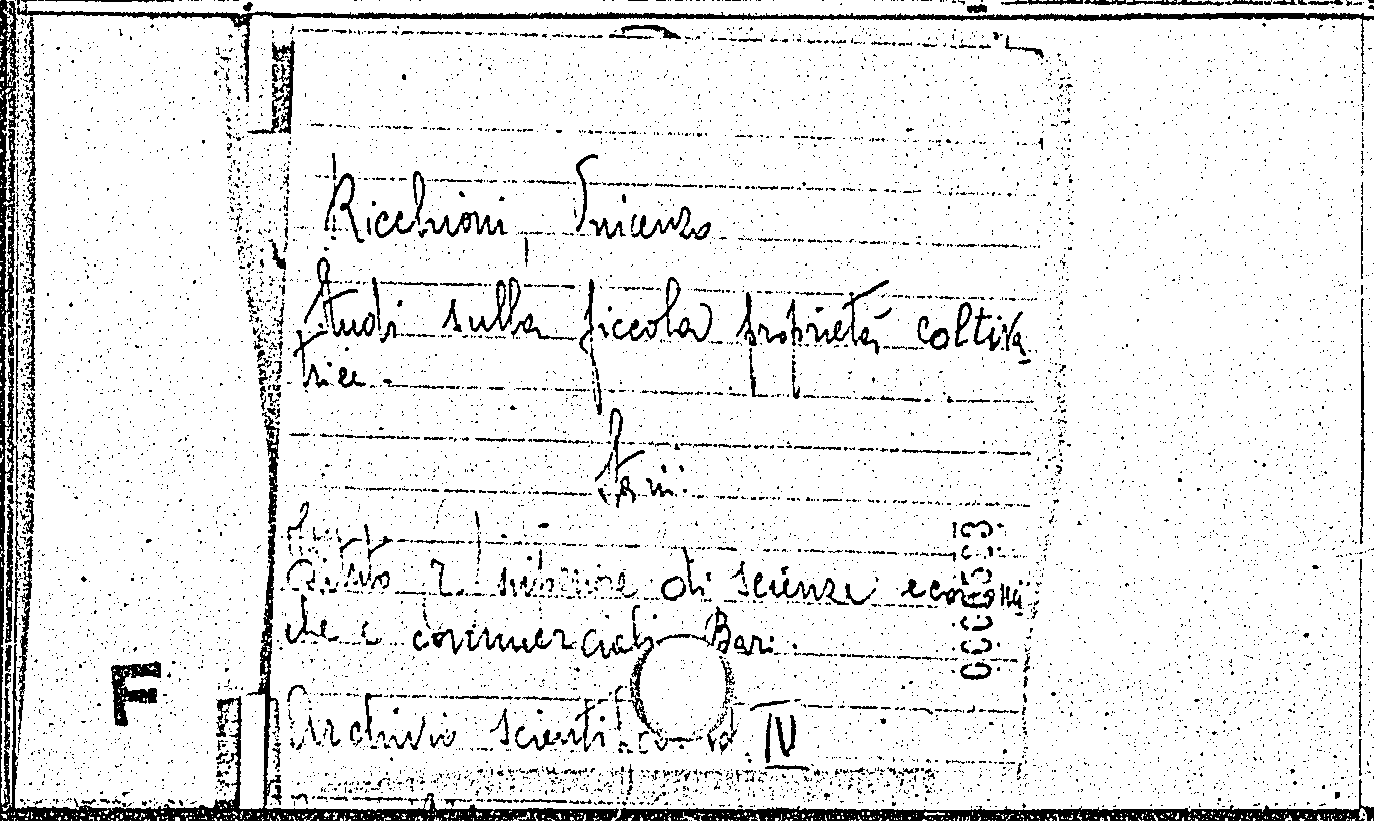 Ricchioni, Vincenzo
Studi sulla piccola proprietà coltiva
trice.
in:
Istituto superiore di scienze economi
che e commerciali Bari.
Archivio scientifico vol. IV
F